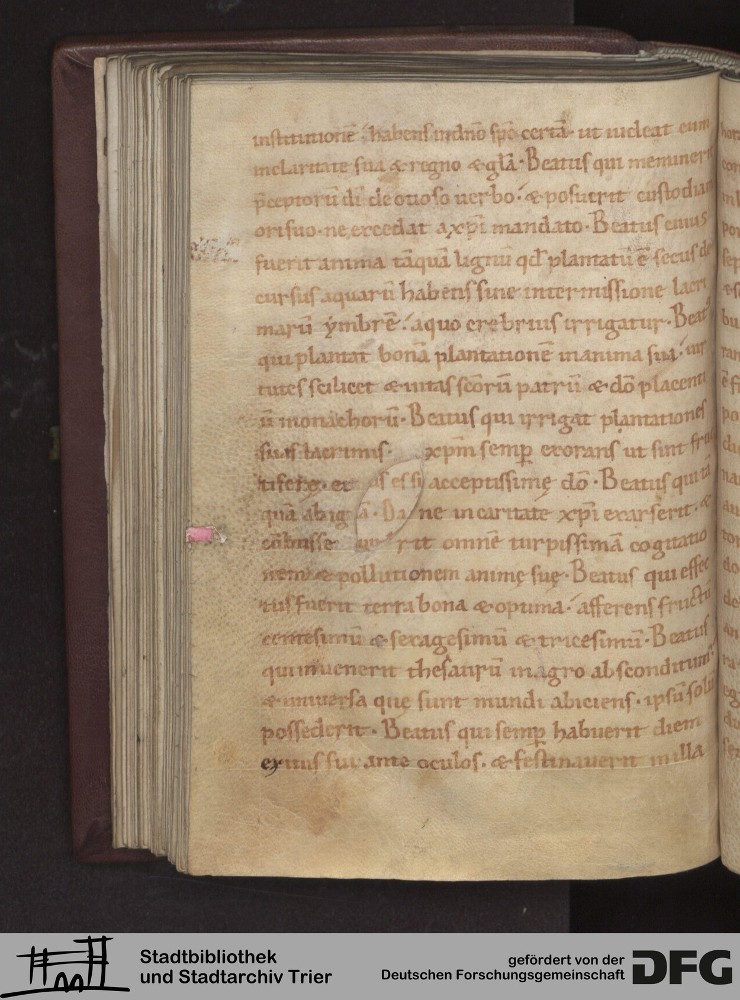 institutionē. habens in dn̄o spē certā. ut uideat eum
in claritate sua & regno & gl̄a. Beatus qui meminerit
p̄ceptorū dī de otioso uerbo. & posuerit custodiam
ori suo. ne excedat a xp̄i mandato. Beatus cuius
fuerit anima tāquā lignū qd̄ plantatū ē secus de
cursus aquarū habens sine intermissione lacri
marū ymbrē. a quo crebrius irrigatur. Beatus
qui plantat bonā plantationē in anima sua. uir
tutes scilicet & uitas scōrū patrū & dō placenti
ū monachorū. Beatus qui irrigat plantationes
suis lacrimis. xpm̄ semp̄ exorans ut sint fruc
acceptissimę dō. Beatus qui tā
quā ab ig ā. ne in caritate xp̄i exarserit. &
omnē turpissimā cogitatio
nem & pollutionem animę suę. Beatus qui effec
tus fuerit terra bona & optima. afferens fructū
centesimū & sexagesimū & tricesimū. Beatus
qui inuenerit thesaurū in agro absconditum.
& uniuersa que sunt mundi abiciens. ipsū solū
possederit. Beatus qui semp̄ habuerit diem
exitus sui ante oculos. & festinauerit in illa
Stadtbibliothek
und Stadtarchiv Trier
gefördert von der
Deutschen Forschungsgemeinschaft DFG